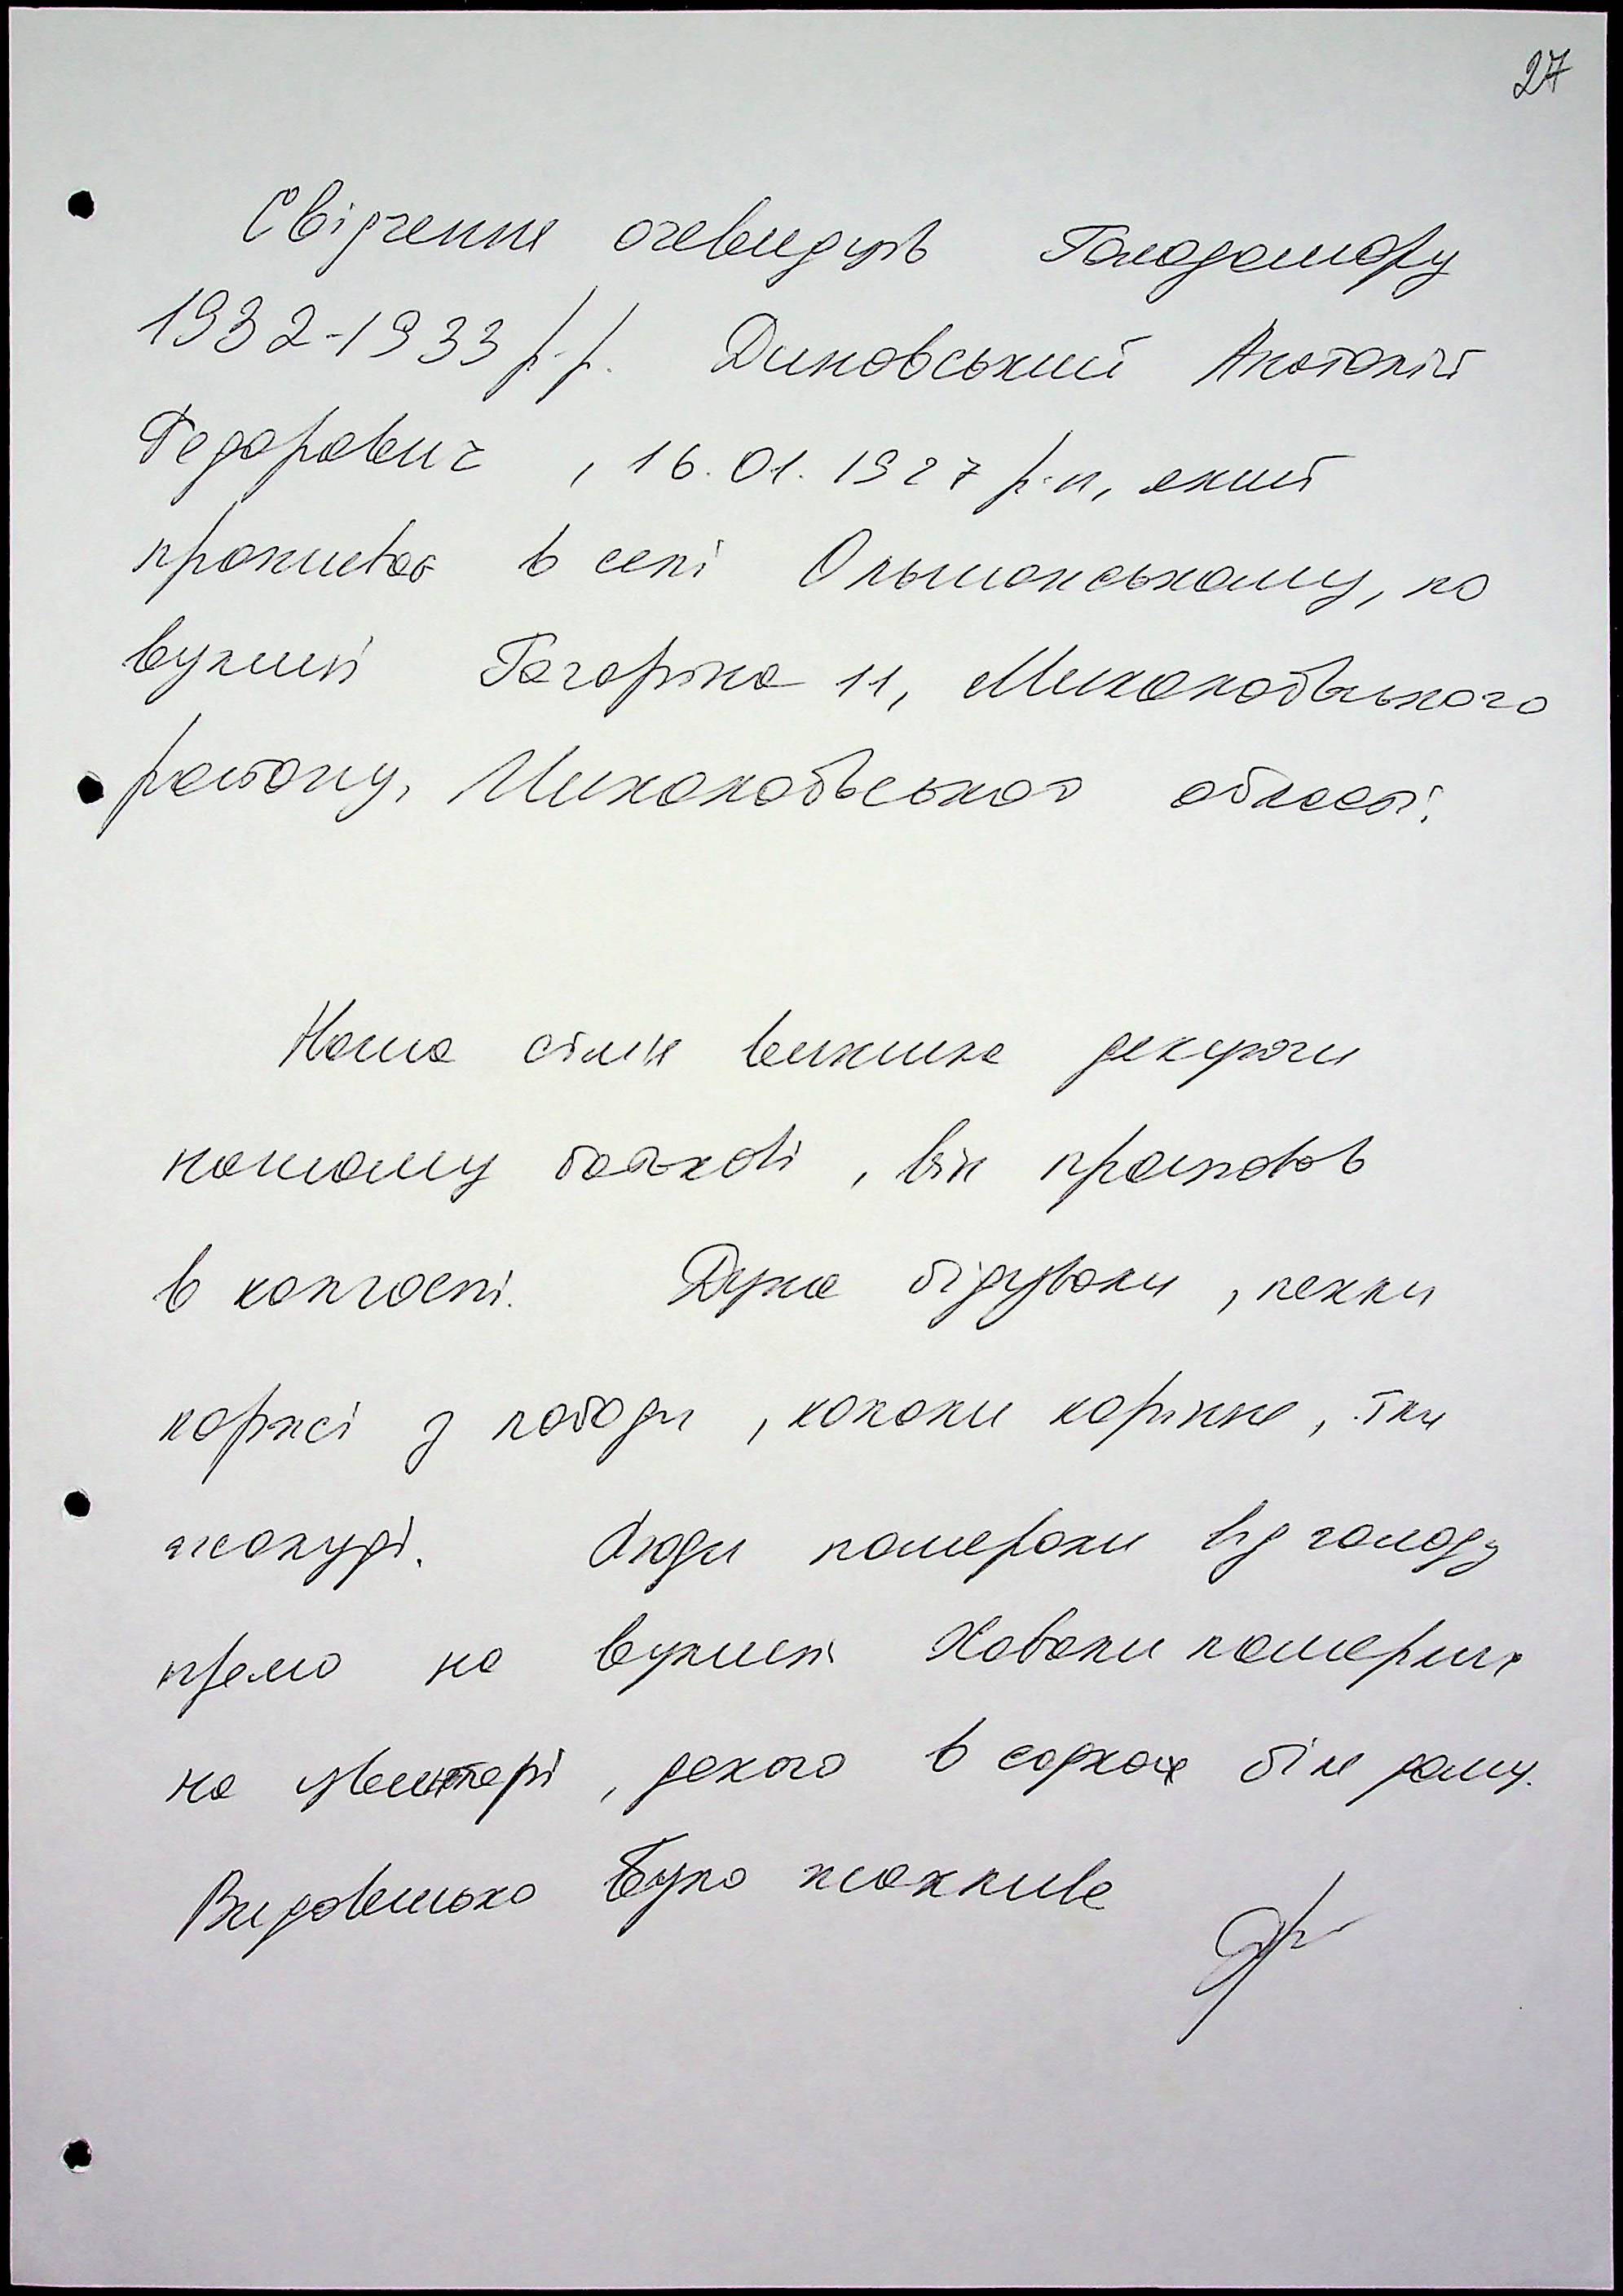 27
Свідчення очевидців Голодомору
1932-1933 р.р. Диковський Анатолій
Федорович, 16.01.1927 р.н, який
проживає в селі Ольшанському, по
вулиці Гагаріна 11, Миколаївського
району, Миколаївської області.
Наша сім'я вижила дякуючи
нашому батькові, він працював
в колгоспі. Дуже бідували, пекли
коржі з лободи, копали коріння, їли
жолуді. Люди помирали від голоду
прямо на вулиці Ховали померлих
на цвинтарі, декого в садках біля дому.
Видовисько було жахливе